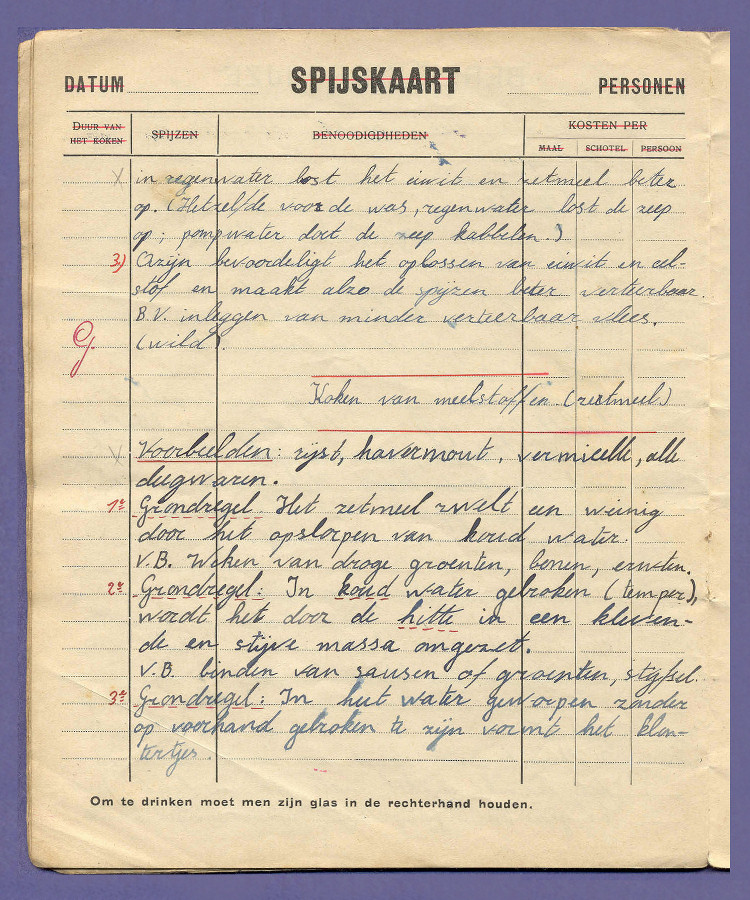 DATUM SPIJSKAART PERSONEN
DUUR VAN HET KOKEN SPIJZEN BENOODIGDHEDEN KOSTEN PER
MAAL SCHOTEL PERSOON
in regenwater lost het eiwit en zetmeel beter
op. (Hetzelfde voor de was, regenwater lost de zeep
op; pompwater doet de zeep kabbelen.)
3) Azijn bevoordeligt het oplossen van eiwit en cel-
stof en maakt alzo de spijzen beter verteerbaar.
B.V. inleggen van minder verteerbaar vlees.
(wild).
G.
Koken van meelstoffen (zetmeel)
Voorbeelden: rijst, havermout, vermicelle, alle
deegwaren.
1e Grondregel. Het zetmeel zwelt een weinig
door het opslorpen van koud water.
V.B. Weken van droge groenten, bonen, erwten.
2e Grondregel: In koud water gebroken (temper),
wordt het door de hitte in een kleven-
de en stijve massa omgezet.
V.B. binden van sausen of groenten, stijfsel.
3e Grondregel: In heet water geworpen zonder
op voorhand gebroken te zijn vormt het klon-
tertjes.
Om te drinken moet men zijn glas in de rechterhand houden.